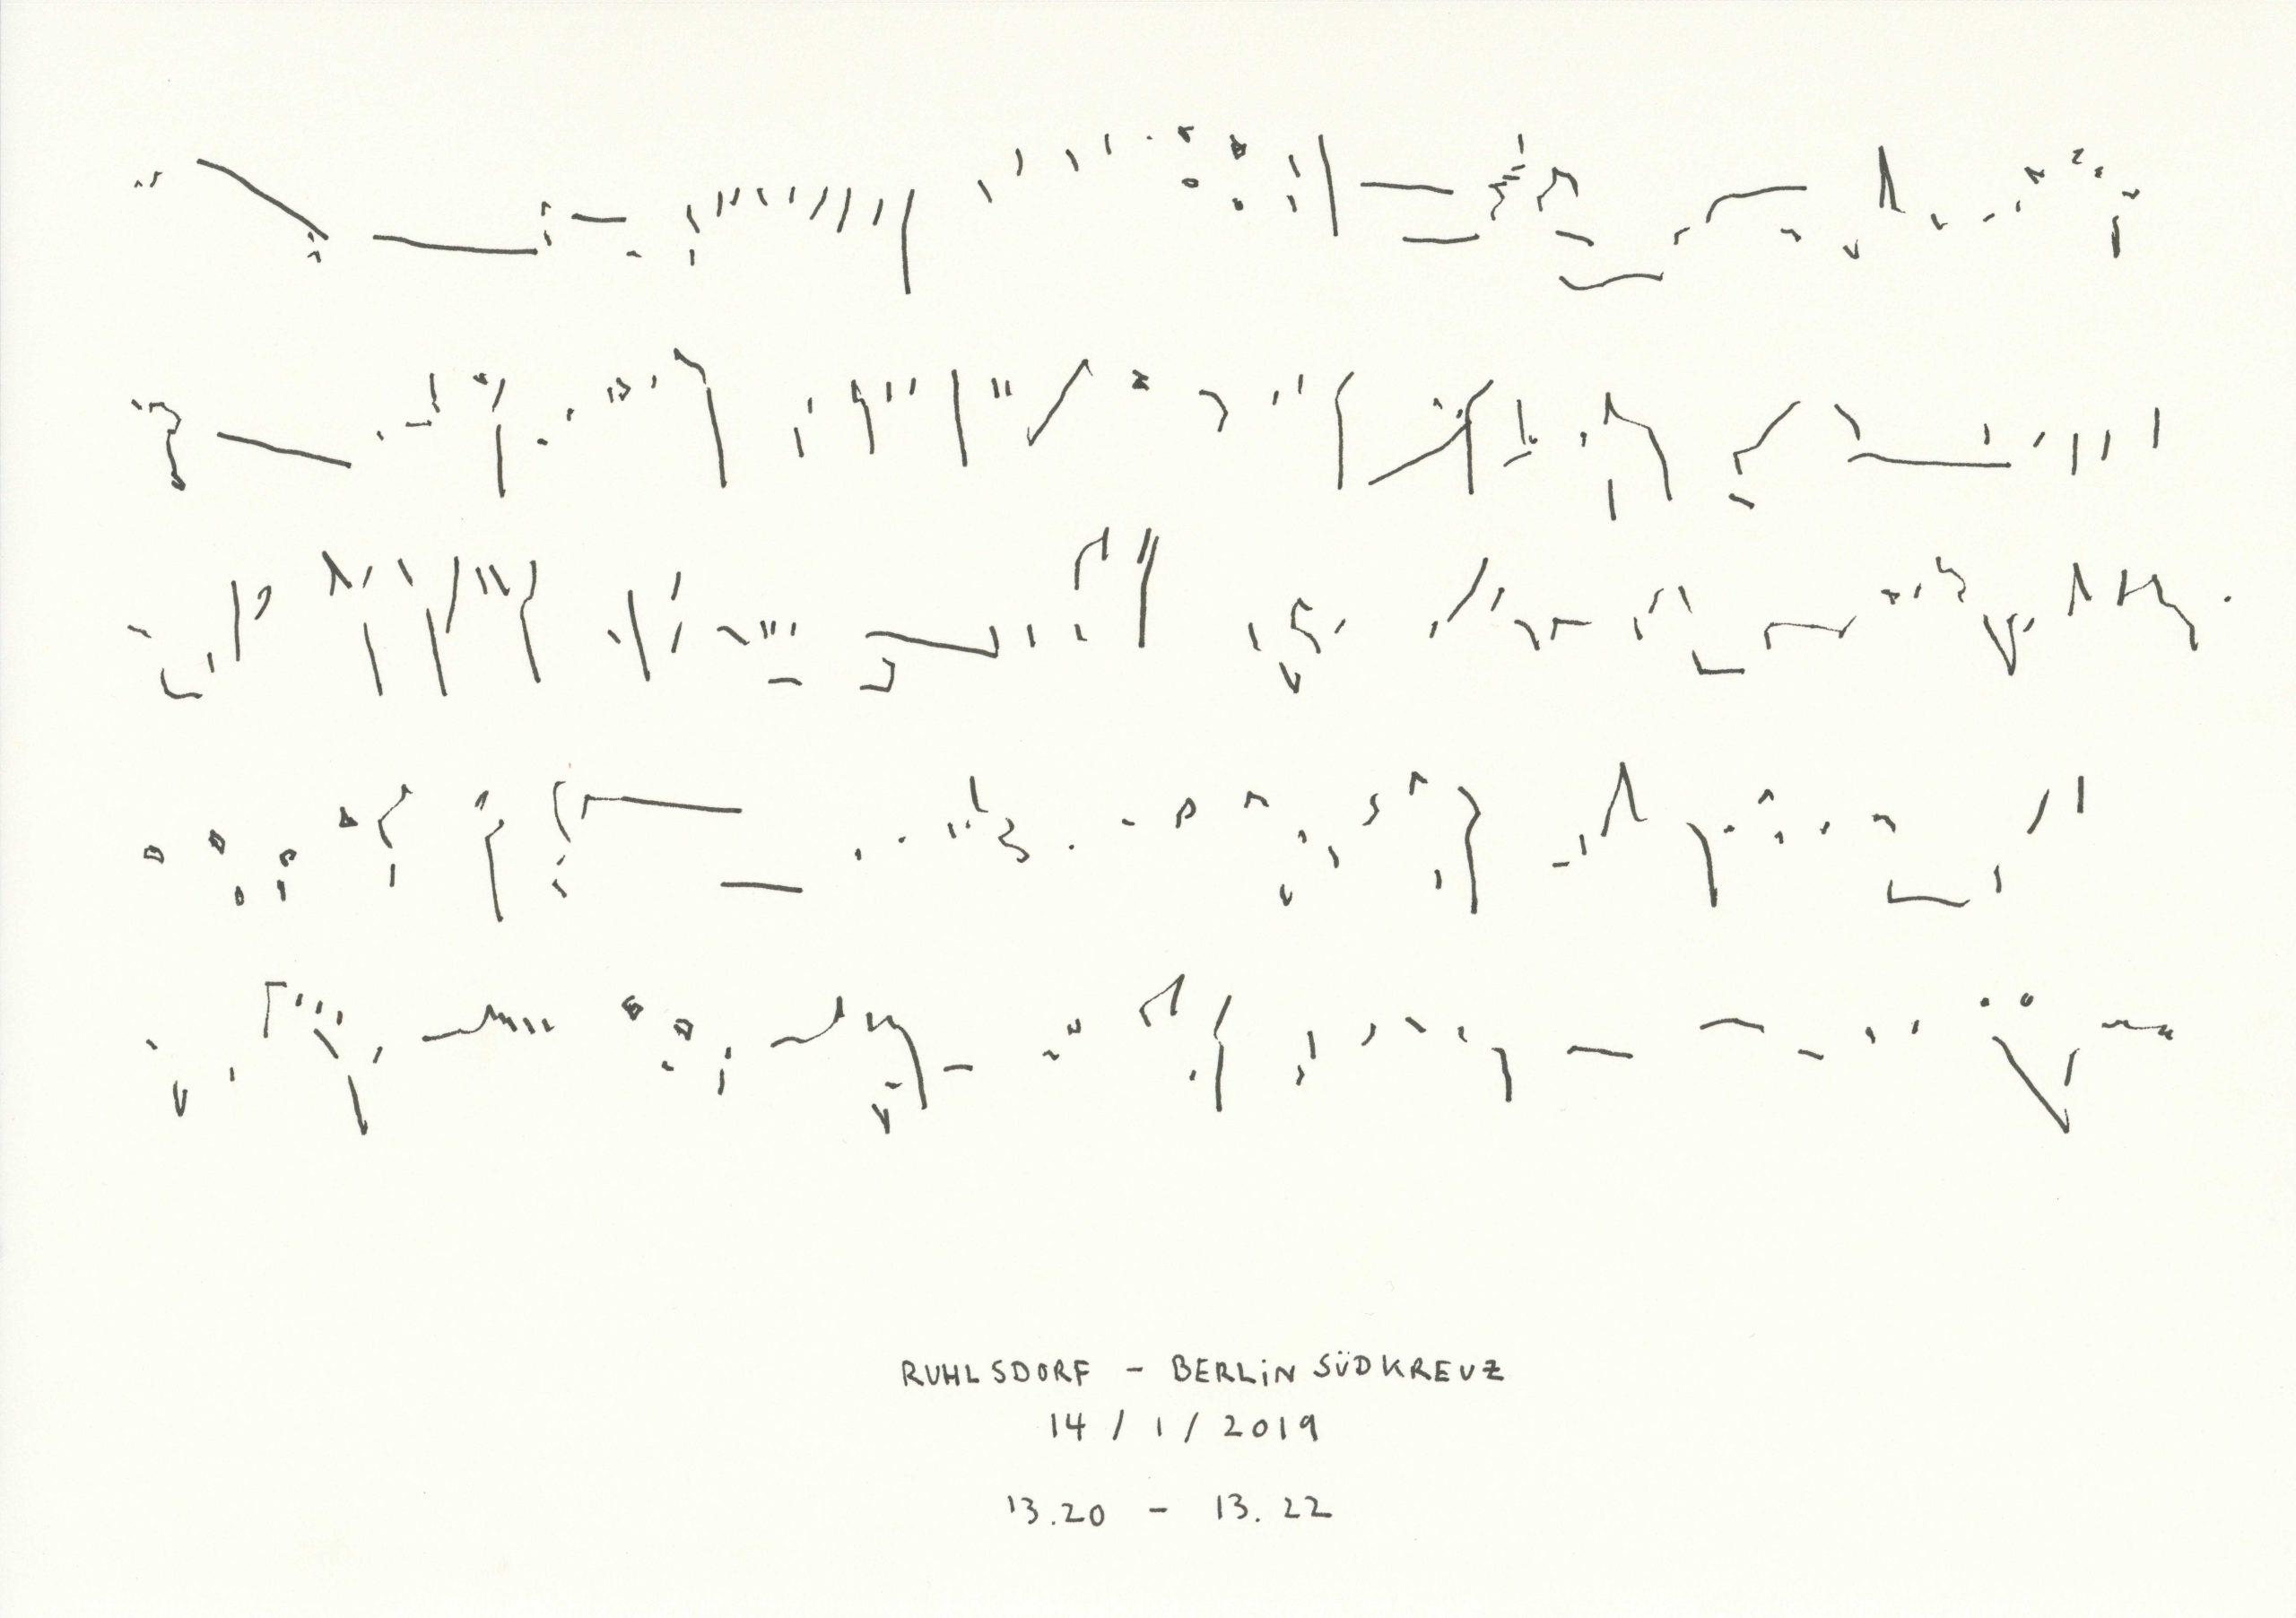 RUHLSDORF - BERLiN SÜDKREUZ
14 / 1 / 2019
13.20 - 13.22